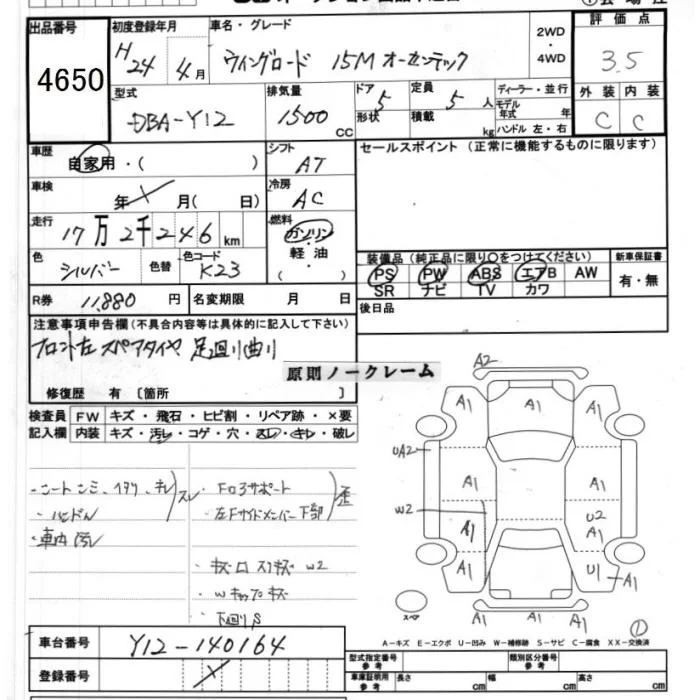 出品番号
4650
初度登録年月
H24 4月
車名・グレード
ウィングロード 15M オーセンテック
2WD
・
4WD
評価点
3.5
型式
DBA-Y12
排気量
1500 CC
ドア 5
形状
定員 5 人
積載 kg
ディーラー・並行
モデル年式 年
ハンドル 左・右
外装 内装
C C
車歴
自家用・( )
シフト
AT
セールスポイント (正常に機能するものに限ります)
車検
年 月( 日)
冷房
AC
走行
17万2千246 km
燃料
ガソリン
・
軽油
( )
色
シルバー
色替
色コード
K23
装備品 (純正品に限り○をつけてください)
新車保証書
PS PW ABS エアB AW
SR ナビ TV カワ
有・無
R券 11,880 円
名変期限 月 日
後日品
注意事項申告欄(不具合内容等は具体的に記入して下さい)
フロント左 スペアタイヤ 足廻り曲り
原則ノークレーム
修復歴 有 〔箇所 〕
検査員 FW キズ・飛石・ヒビ割・リペア跡・×要
記入欄 内装 キズ・汚レ・コゲ・穴・スレ・キレ・破レ
・ハンドル
・車内汚レ
スレ
Fロアサポート
左Fサイドメンバー下部
歪
・キズ W2
・Wキャップキズ
・下廻りS
A2
A1 A1 A1
UA2
A1 A1
W2
U2
A1 A1
A1 U1 A1
スペア
A1 A1 A1
①
A-キズ E-エクボ U-凹み W-補修跡 S-サビ C-腐食 XX-交換済
車台番号 Y12-140164
登録番号
型式指定番号 参考
類別区分番号 参考
車庫証明用 参考
長さ cm
幅 cm
高さ cm